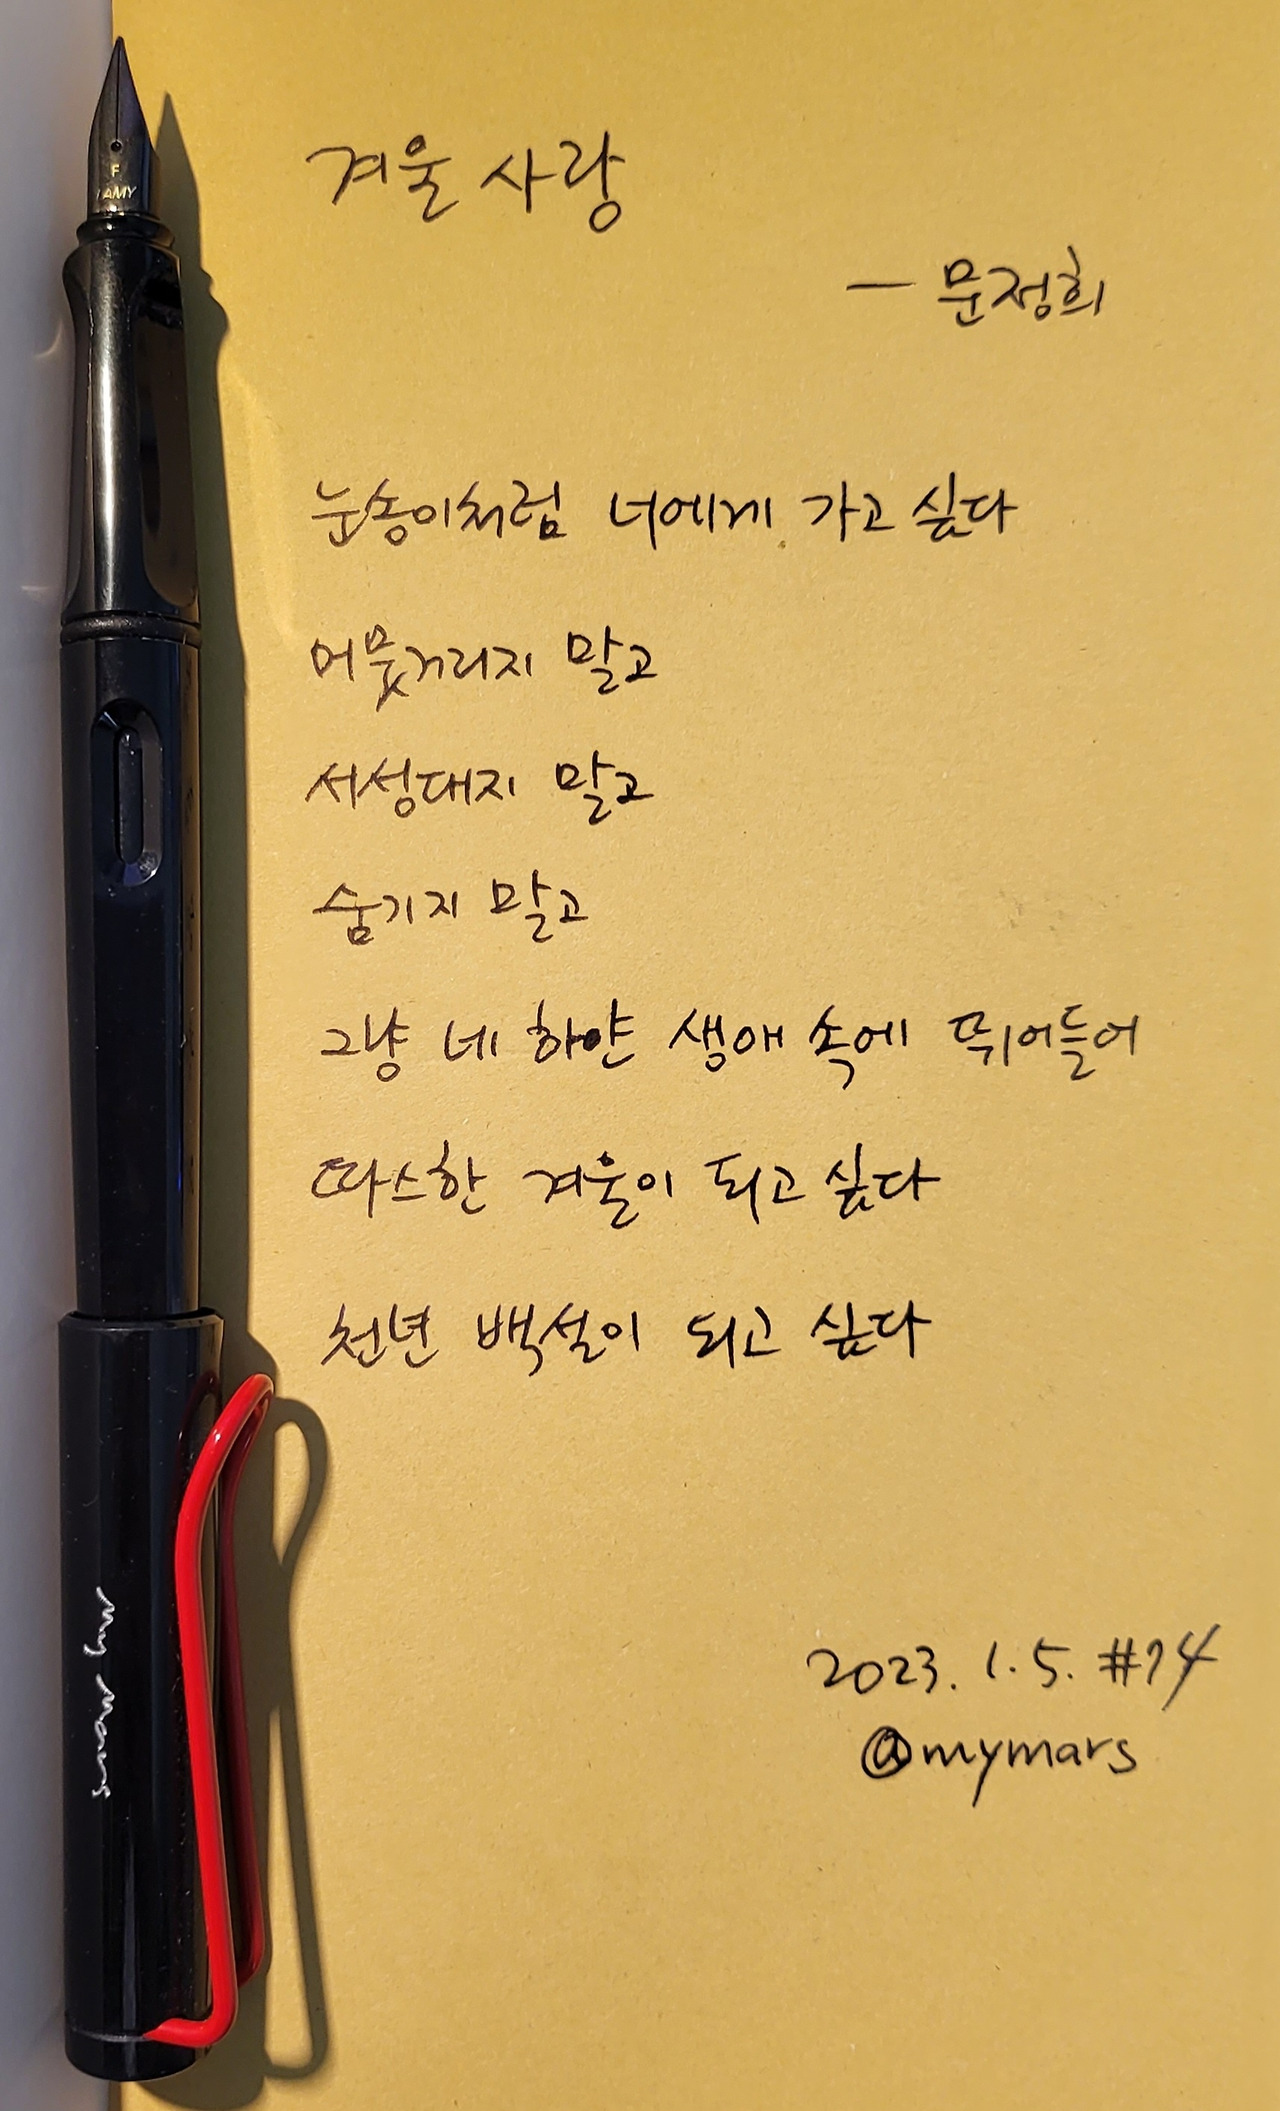 F
LAMY
겨울 사랑
— 문정희
눈송이처럼 너에게 가고 싶다
머뭇거리지 말고
서성대지 말고
숨기지 말고
그냥 네 하얀 생애 속에 뛰어들어
따스한 겨울이 되고 싶다
천년 백설이 되고 싶다
my mars
2023. 1. 5. #74
@mymars